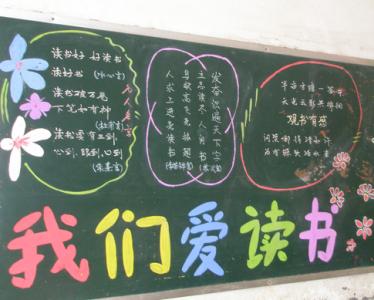 读书好 好读书
读好书 (冰心言)
读书破万卷
下笔如有神
(杜甫言)
读书需有三到
心到、眼到、口到
(朱熹言)
名人名言
发奋识遍天下字
立志读尽人间书
鸟欲高飞先振翅
人求上进先读书
半亩方塘一鉴开
天光云影共徘徊
观书有感
问渠那得清如许
为有源头活水来
我们爱读书